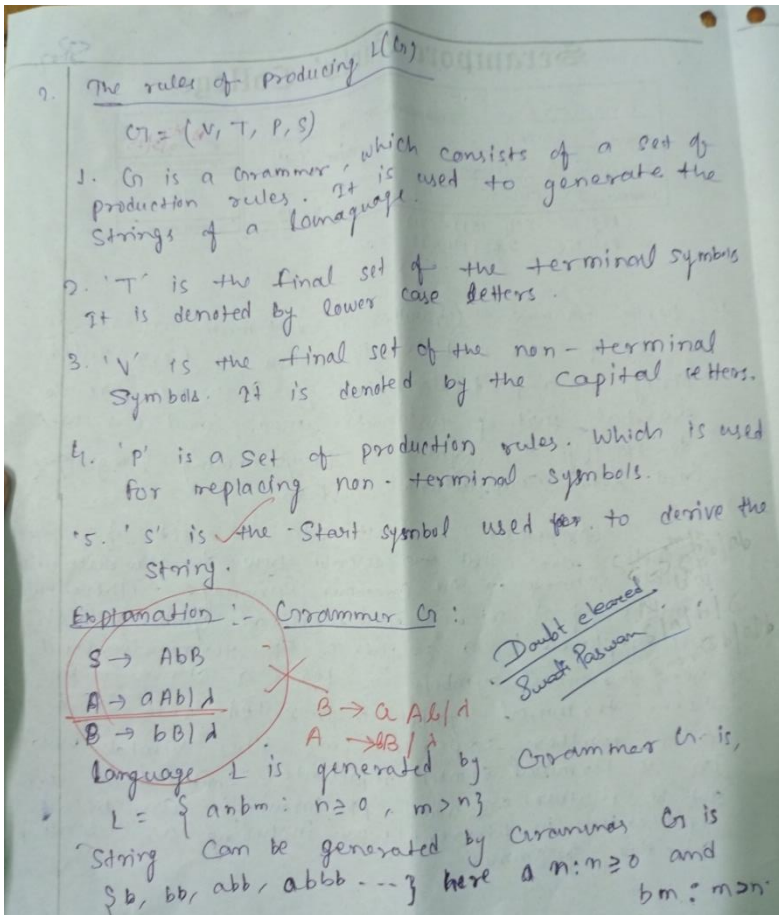 2. The rules of producing L(G)
G = (V, T, P, S)
1. G is a Grammer, which consists of a set of
production rules. It is used to generate the
Strings of a Lomaguage.
2. 'T' is the final set of the terminal symbols
It is denoted by lower case letters.
3. 'V' is the final set of the non-terminal
Symbols. It is denoted by the Capital letters.
4. 'P' is a set of production rules. Which is used
for replacing non-terminal symbols.
5. 'S' is the Start symbol used for to derive the
String.
Explanation :- Grammer G :
Doubt cleared
Swati Paswan
S → AbB
A → aAb|λ
B → bB|λ
B → a Ab|λ
A → bB|λ
Language L is generated by Grammer G is,
L = { anbm : n≥0, m>n}
String Can be generated by Grammar G is
{b, bb, abb, abbb ---} here a n:n≥0 and
bm : m>n